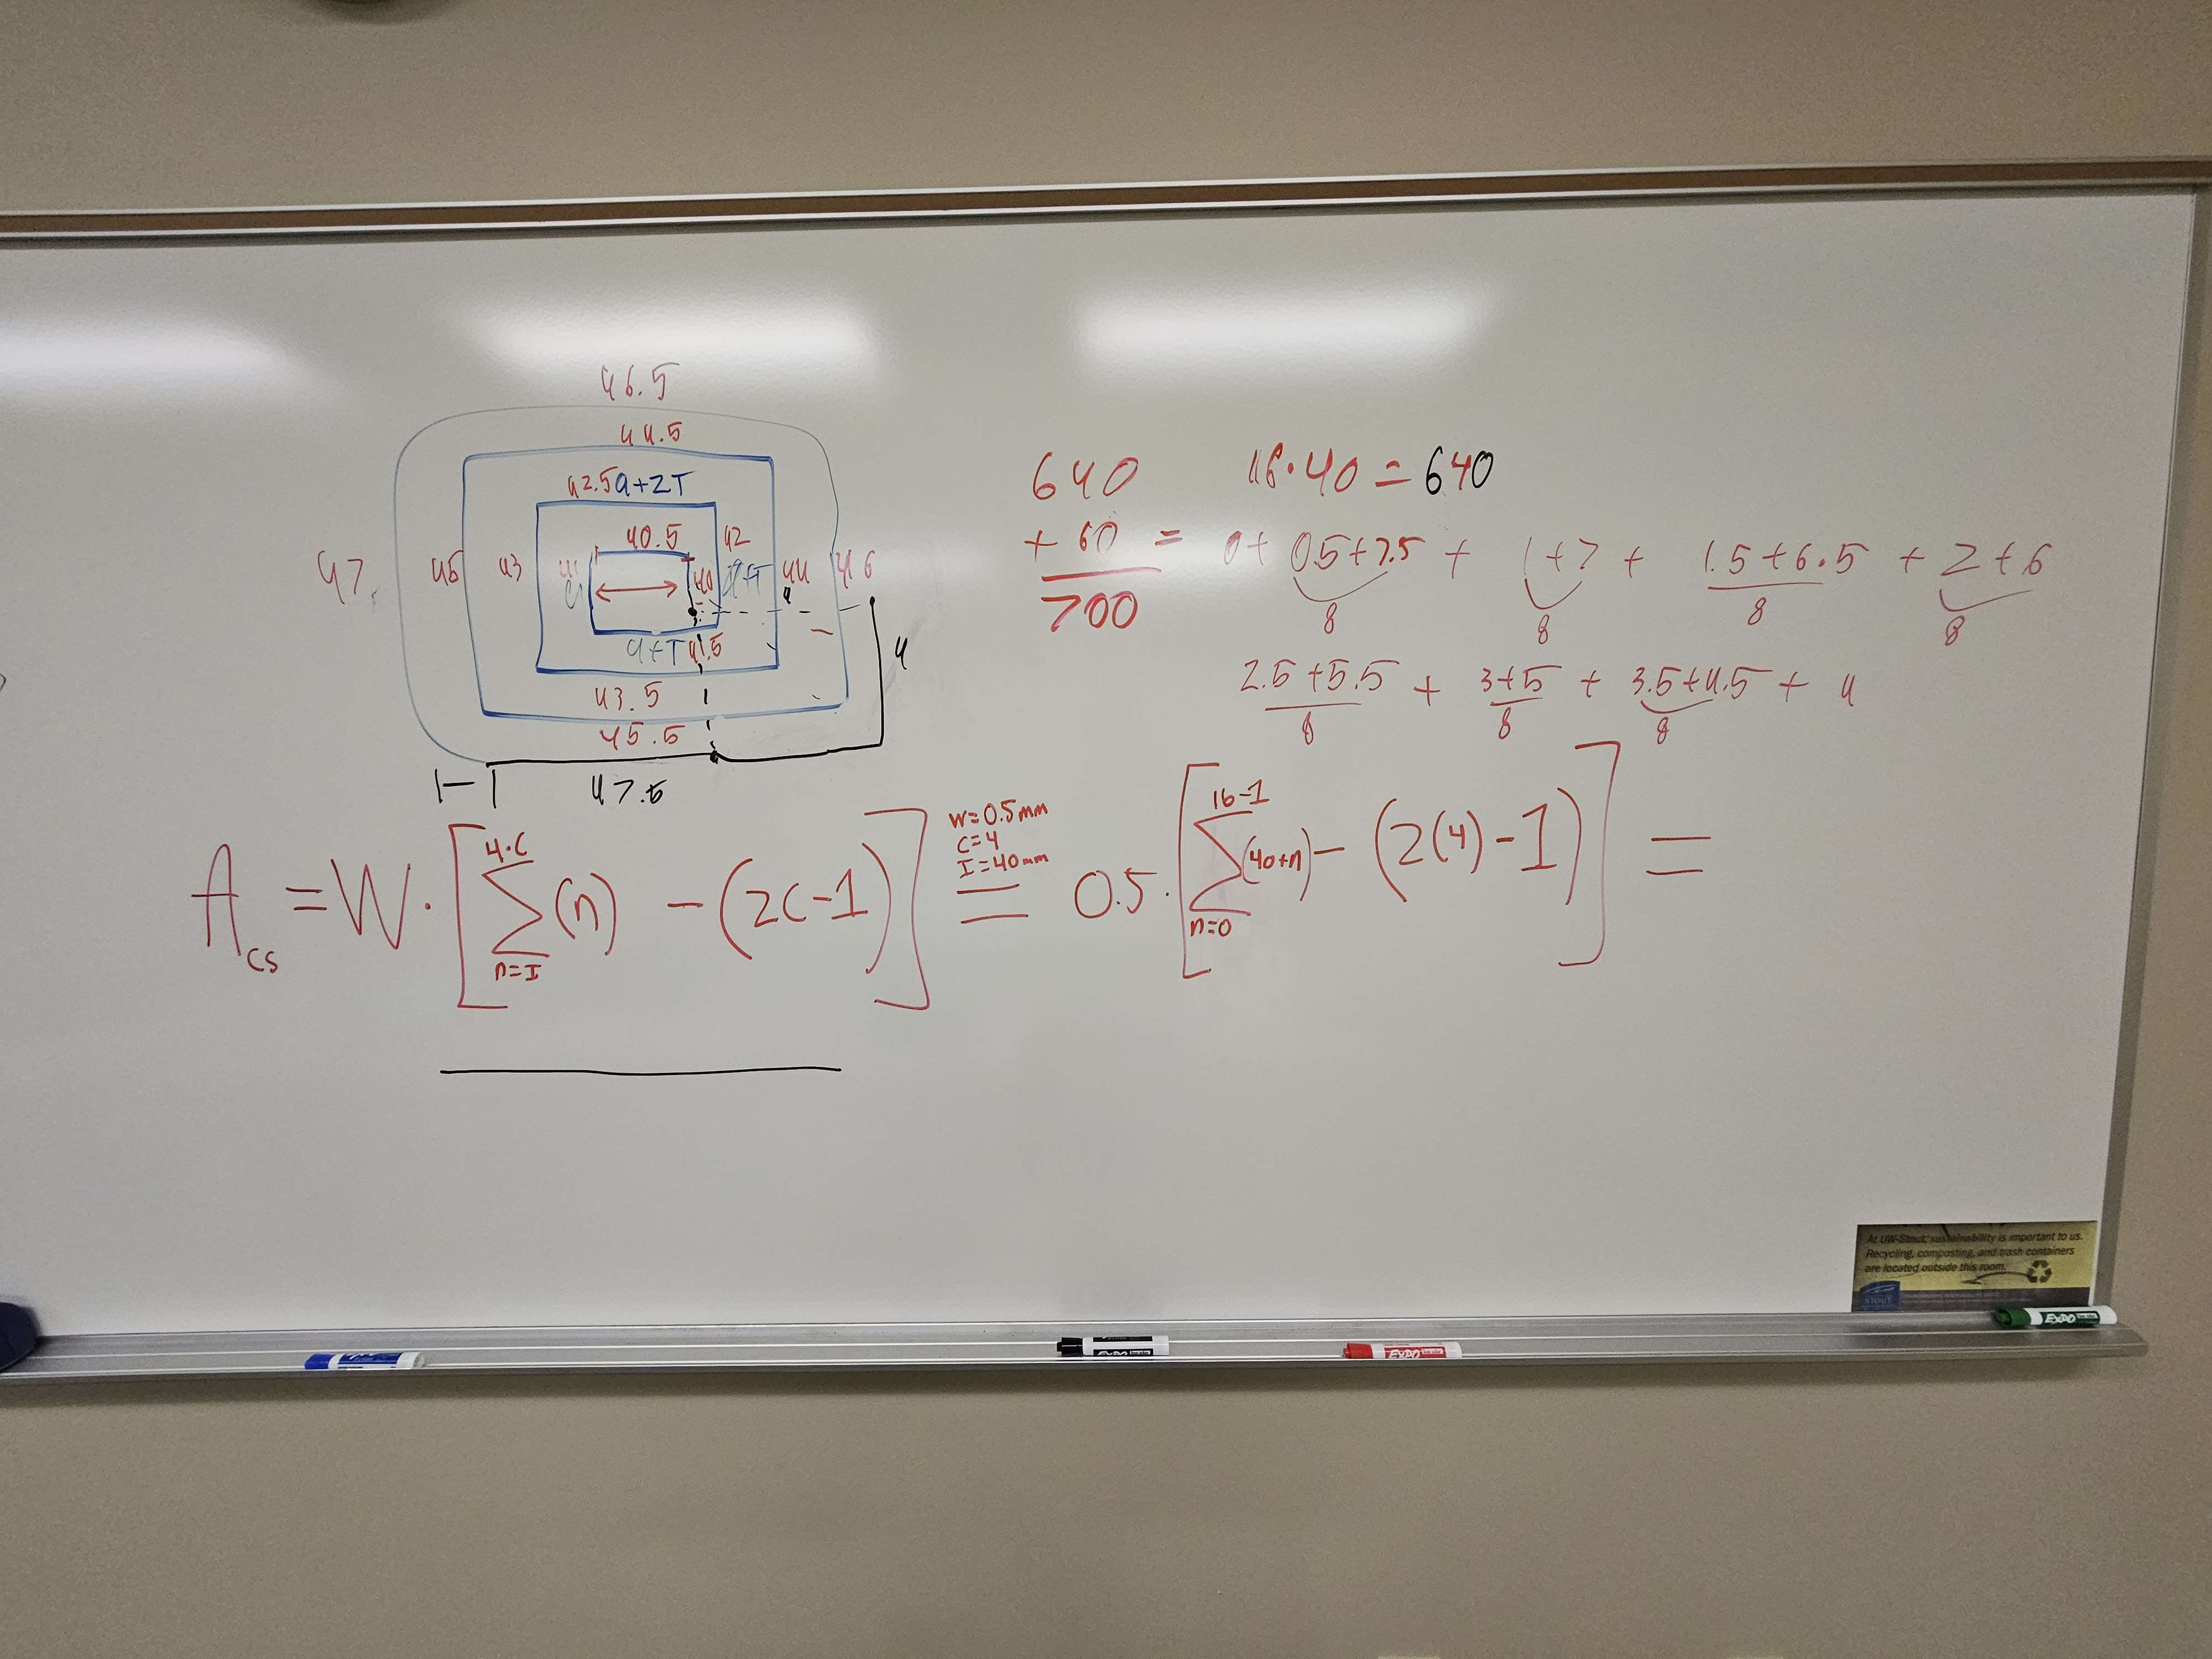 46.5
44.5
42.5 a+2T
40.5
42
47.
45
43
40
44
46
4
a+T 41.5
43.5
45.5
47.5
640
+ 60 =
700
16·40 = 640
0 + 0.5+7.5 + 1+7 + 1.5+6.5 + 2+6
8 8 8 8
2.5+5.5 + 3+5 + 3.5+4.5 + 4
8 8 8
A_cs = W · [ 4·C ∑ n=I (n) - (2C-1) ] = 0.5 · [ 16-1 ∑ n=0 (40+n) - (2(4)-1) ] =
W=0.5mm
C=4
I=40mm
At UW-Stout, sustainability is important to us.
Recycling, composting, and trash containers
are located outside this room.
EXPO
EXPO
EXPO